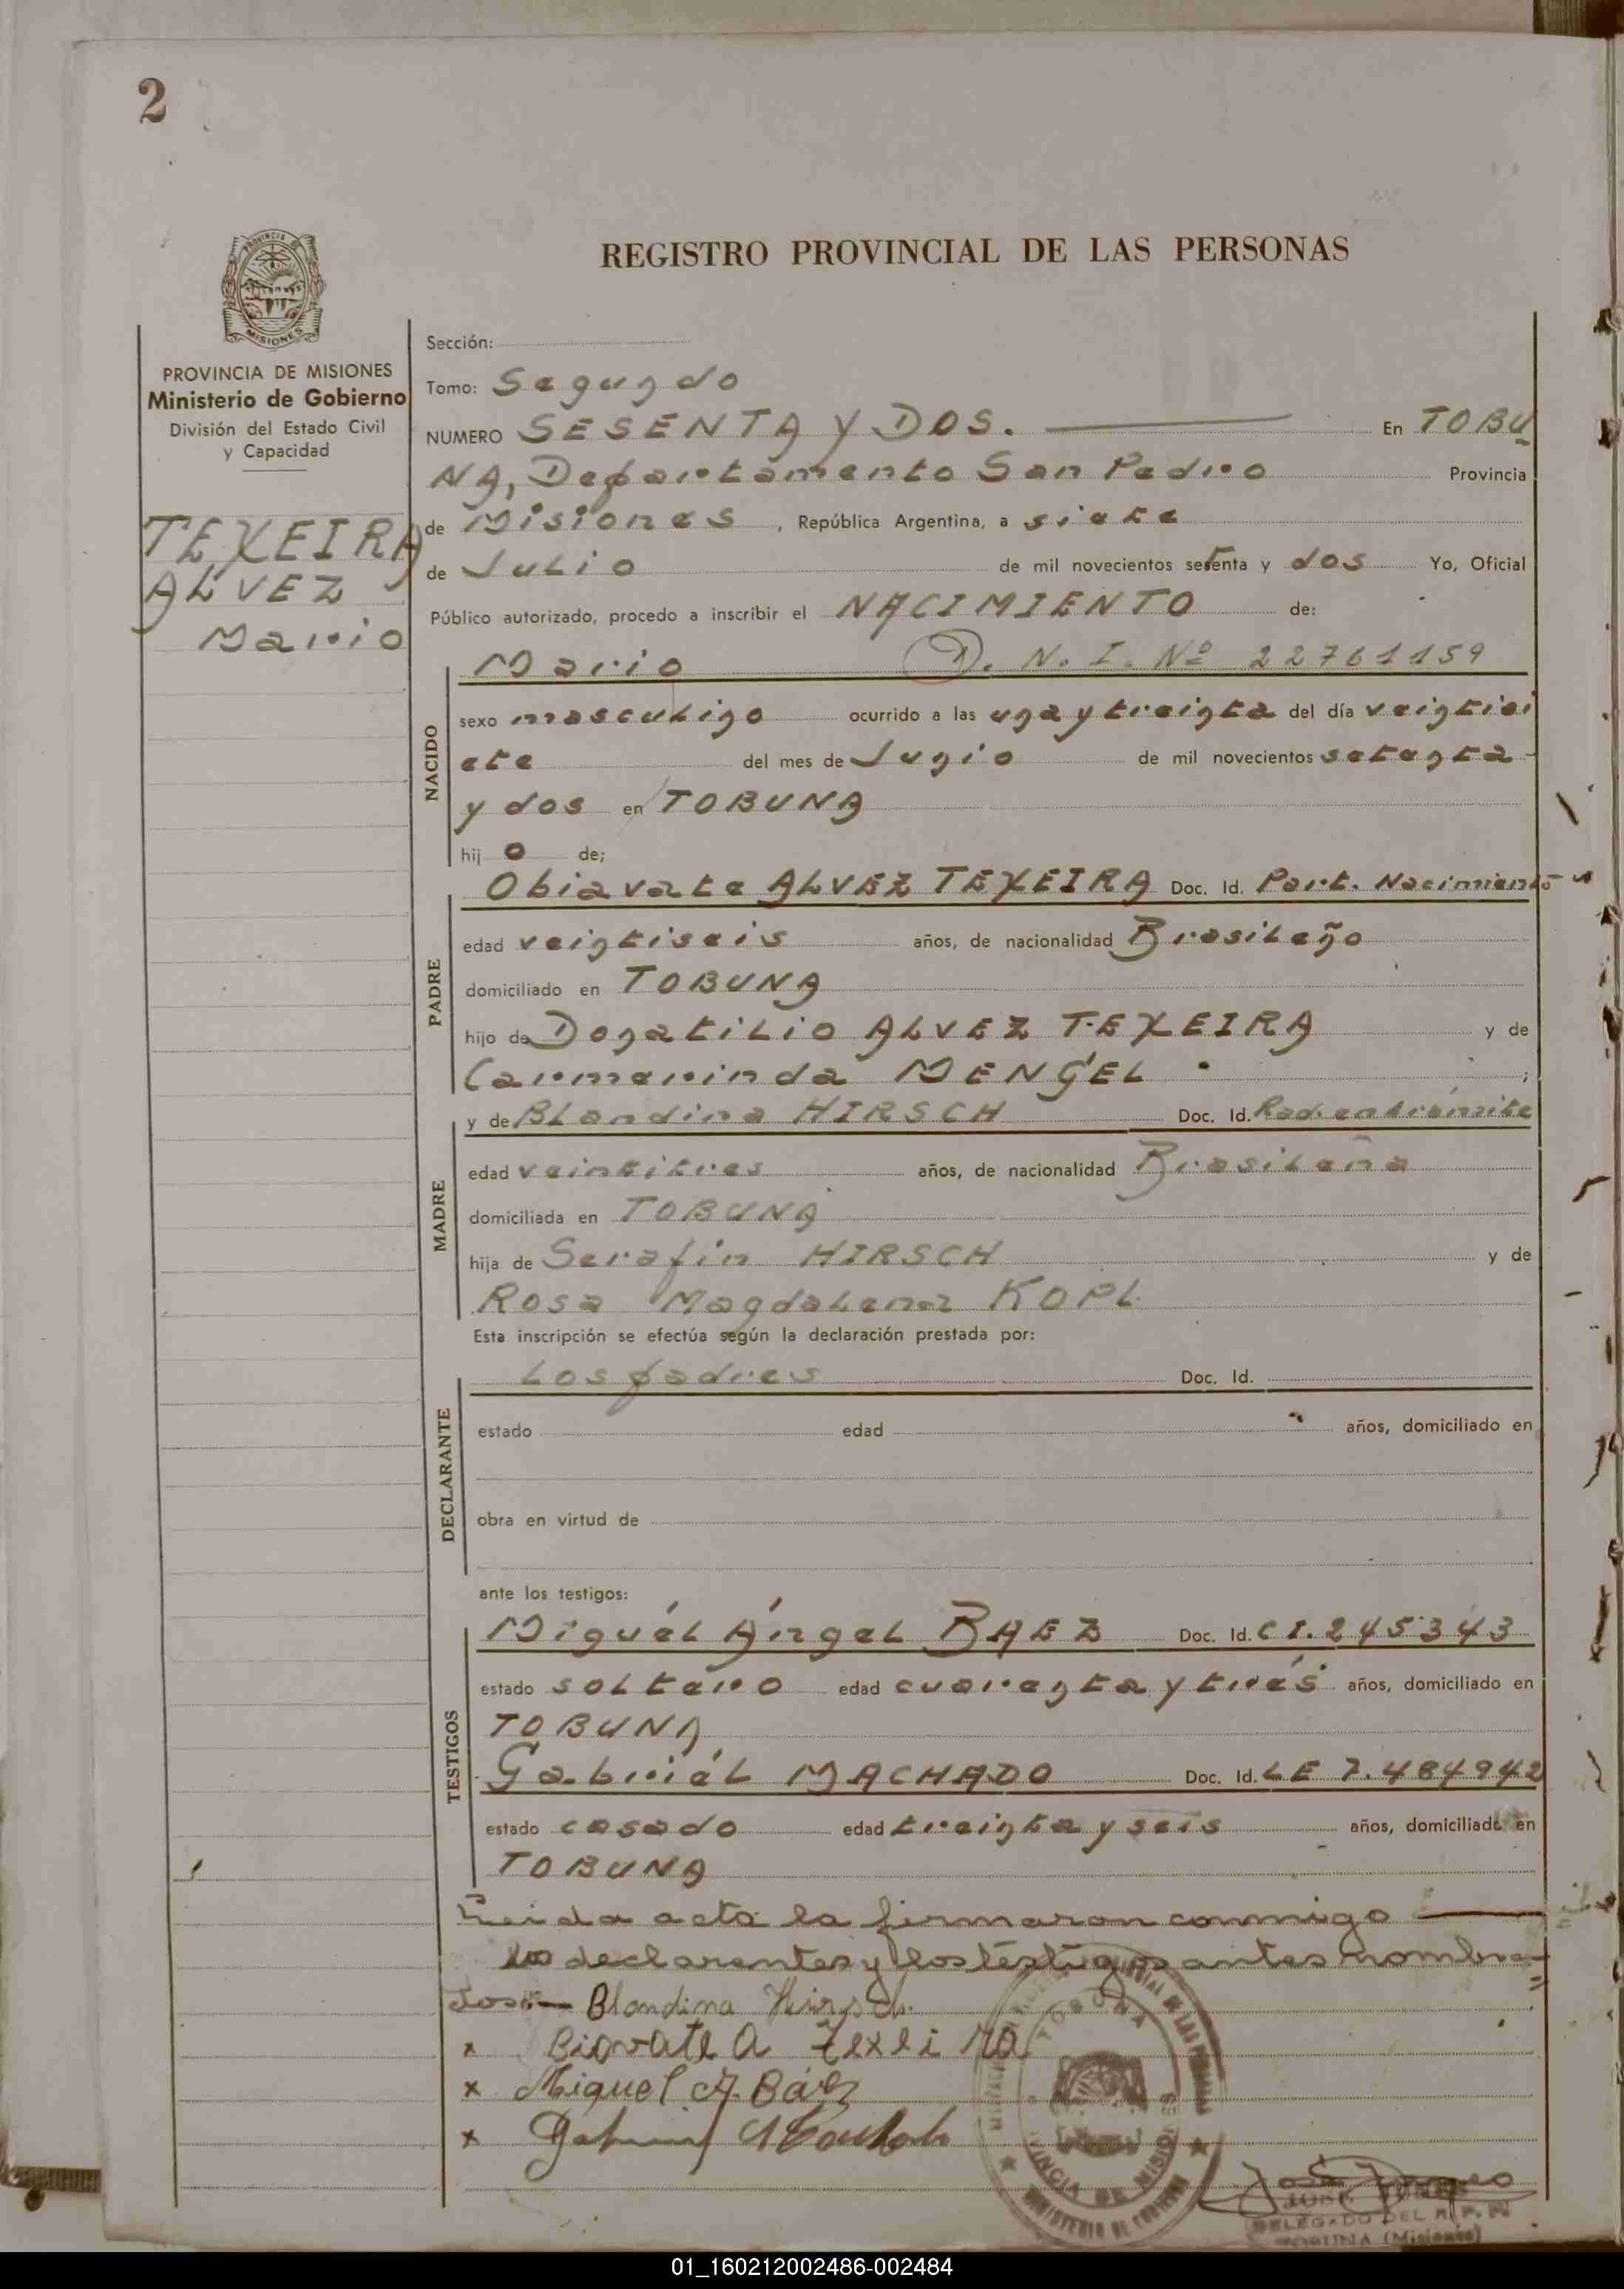 2
REGISTRO PROVINCIAL DE LAS PERSONAS
PROVINCIA DE
MISIONES
PROVINCIA DE MISIONES
Ministerio de Gobierno
División del Estado Civil
y Capacidad
TEXEIRA
ALVEZ
Mario
Sección:
Tomo: Segundo
NUMERO SESENTA Y DOS. En TOBU
NA, Departamento San Pedro Provincia
de Misiones, República Argentina, a siete
de Julio de mil novecientos setenta y dos Yo, Oficial
Público autorizado, procedo a inscribir el NACIMIENTO de:
Mario D. N. I. Nº 22761159
NACIDO
sexo masculino ocurrido a las una y treinta del día veintisi
ete del mes de Junio de mil novecientos setenta
y dos en TOBUNA
hijo de;
Obiavate ALVEZ TEXEIRA Doc. Id. Part. Nacimiento
PADRE
edad veintiseis años, de nacionalidad Brasileño
domiciliado en TOBUNA
hijo de Donatilio ALVEZ TEXEIRA y de
Carmerinda MENGEL ;
y de Blandina HIRSCH Doc. Id. Rad. en trámite
MADRE
edad veintitres años, de nacionalidad Brasileña
domiciliada en TOBUNA
hija de Serafin HIRSCH y de
Rosa Magdalena KOPL
Esta inscripción se efectúa según la declaración prestada por:
Los padres Doc. Id.
DECLARANTE
estado edad años, domiciliado en
obra en virtud de
ante los testigos:
TESTIGOS
Miguél Ángel BAEZ Doc. Id. C I. 245343
estado soltero edad cuarenta y trés años, domiciliado en
TOBUNA
Gabriél MACHADO Doc. Id. LE 7.484942
estado casado edad treinta y seis años, domiciliado en
TOBUNA
Leida acta la firmaron conmigo
los declarentes y los testigos antes nombra
dos Blandina Hirsch
x Biovate A Texeira
x Miguel A. Báez
x
TOBUNA
PROVINCIA DE MISIONES
MINISTERIO DE GOBIERNO
DELEGADO DEL R. P. P.
TOBUNA (Misiones)
01_160212002486-002484